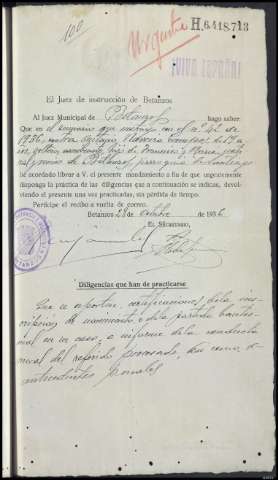 100
Urgente
H.6.418,713
¡VIVA ESPAÑA!
El Juez de instrucción de Betanzos
Al Juez Municipal de Betanzos hago saber:
Que en el sumario que instruyo con el nº 42 de
1936, contra de 19 a
soltero, hijo de Francisco y María,
vecino de Betanzos, parroquia de Santiago
he acordado librar a V. el presente mandamiento a fin de que urgentemente
disponga la práctica de las diligencias que a continuación se indican, devol-
viendo el presente una vez practicadas, sin pérdida de tiempo.
Participe el recibo a vuelta de correo.
Betanzos 28 de octubre de 1936
El Secretario,
Diligencias que han de practicarse
Que se aporten certificaciones de la ins-
cripción de nacimiento, o de la partida bautis-
mal en su caso, e informe de la conducta
moral del referido procesado, así como de
antecedentes penales